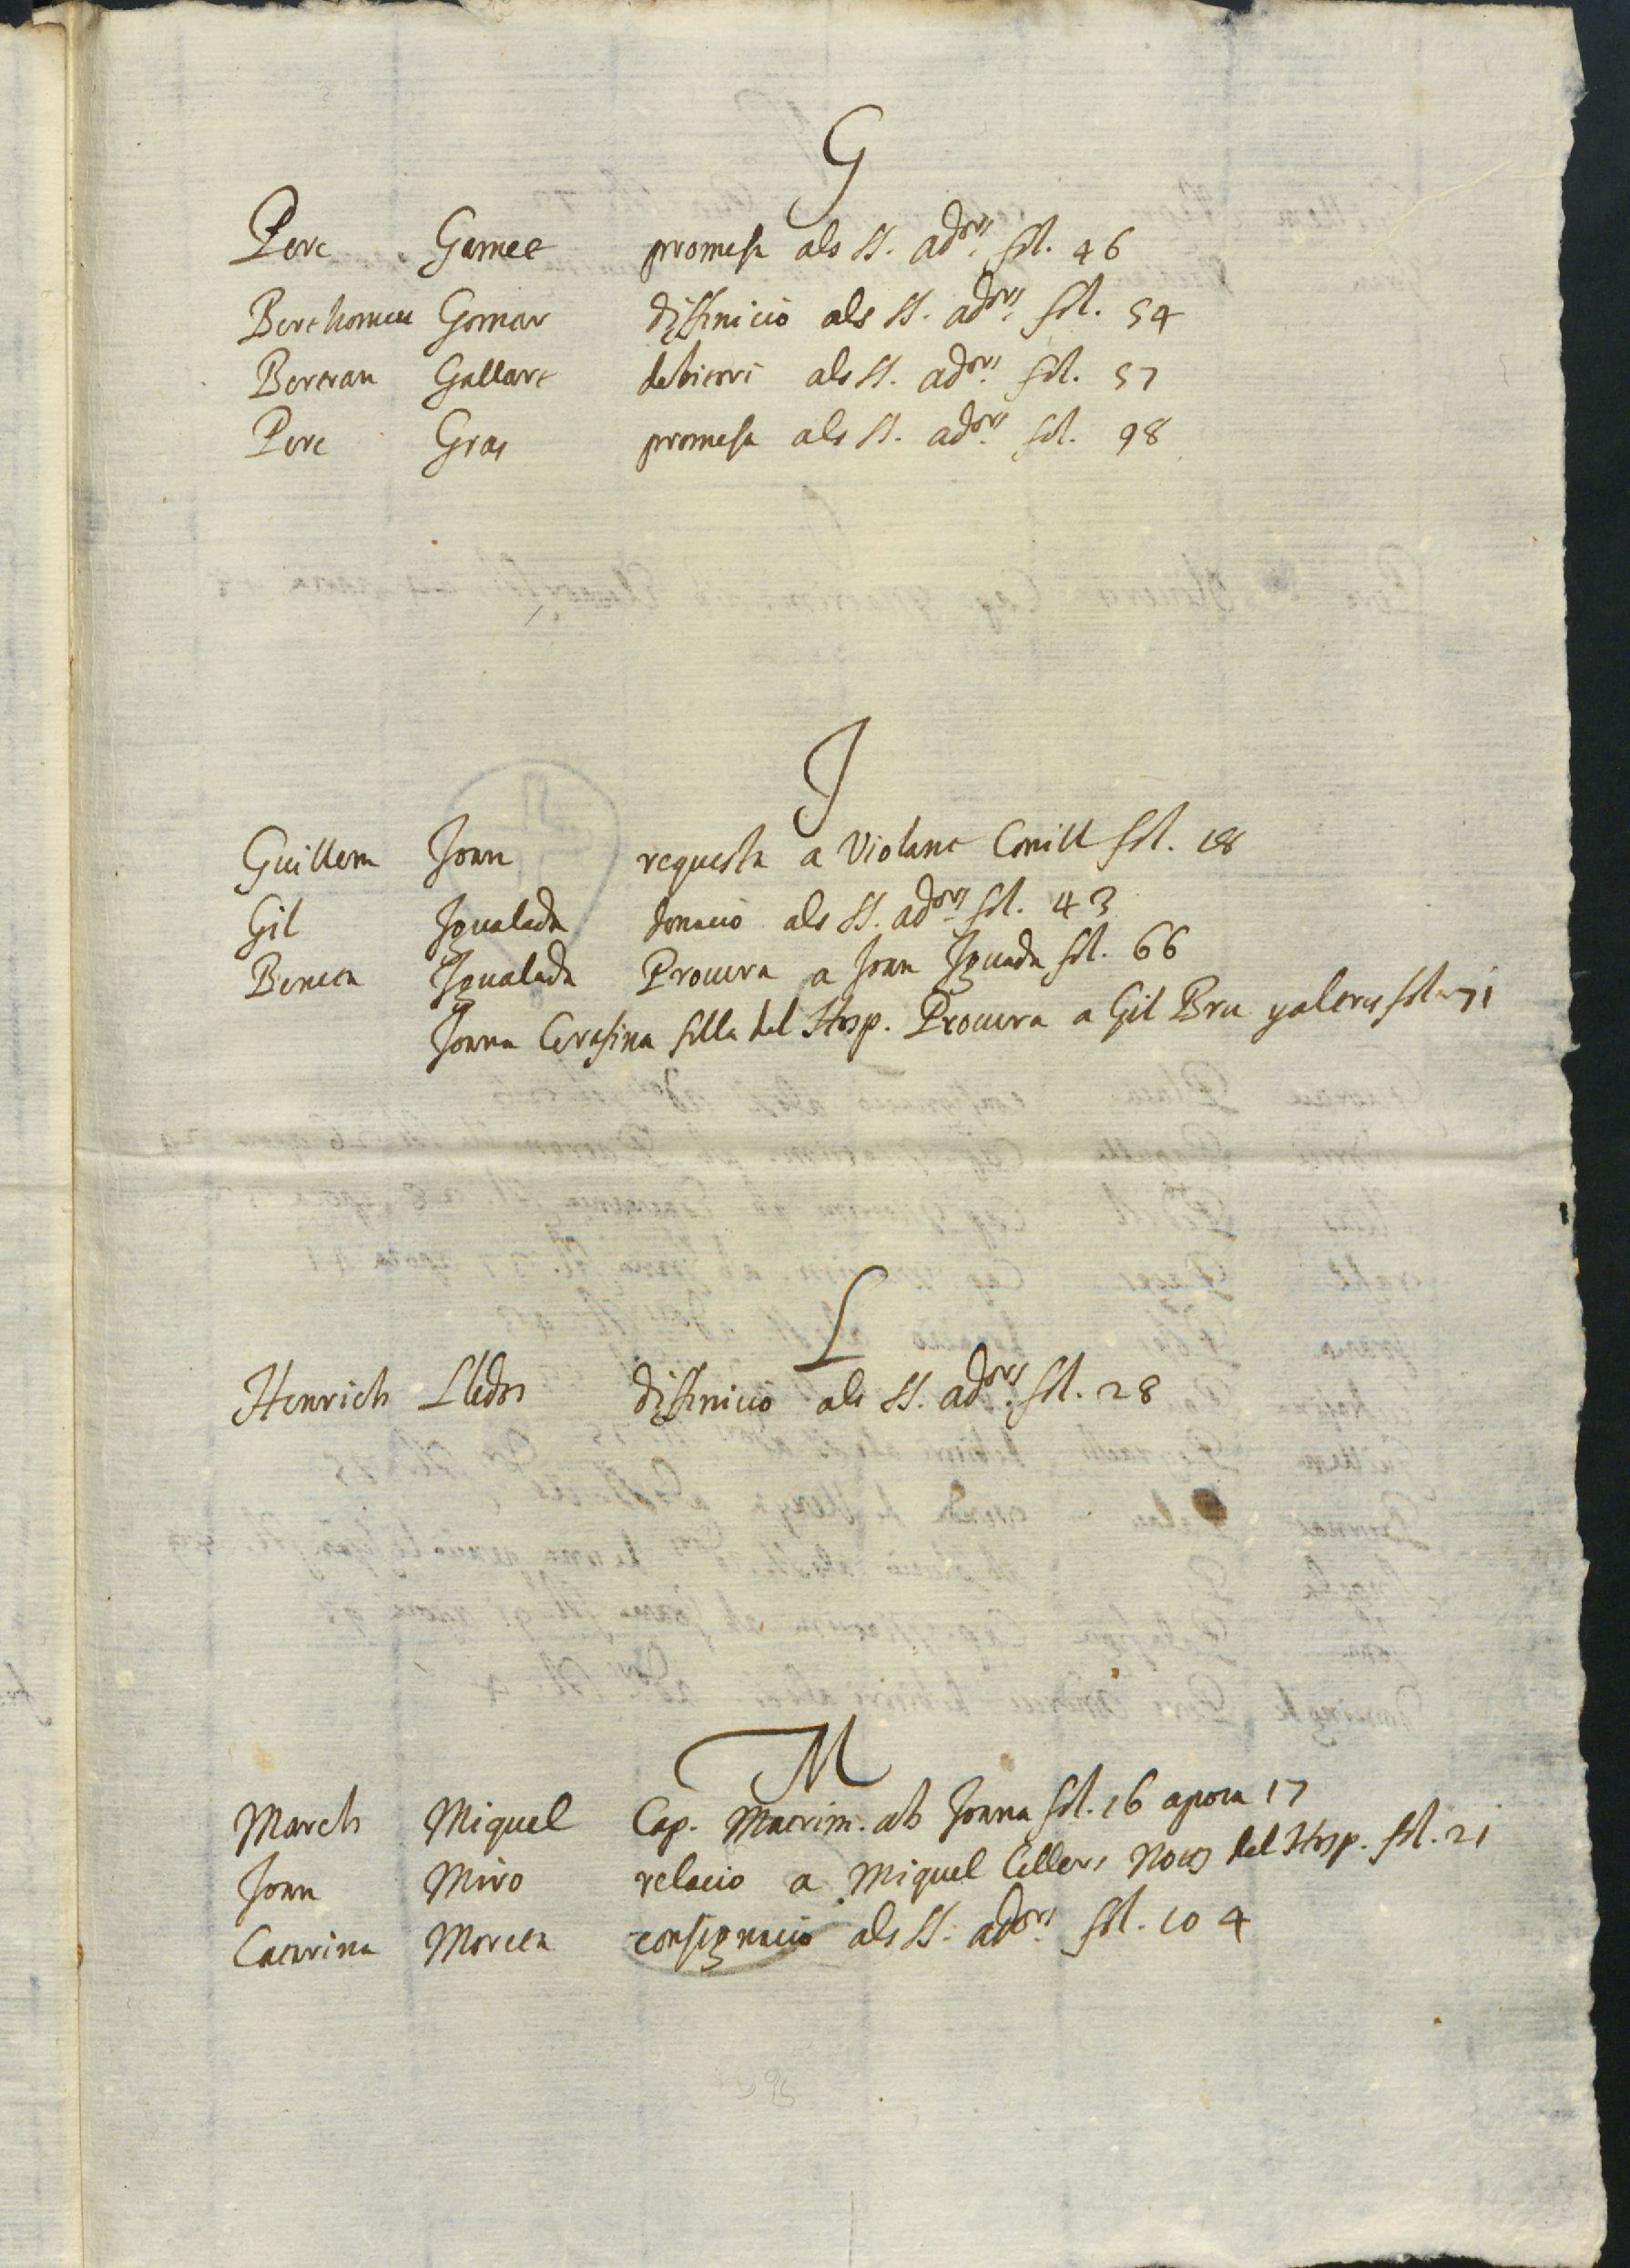 G
Pere Gamet promesa als SS. ad.ors fol. 46
Berthomeu Gomar diffinicio als SS. ad.ors fol. 54
Bertran Gallart debitori als SS. ad.ors fol. 57
Pere Gras promesa als SS. ad.ors fol. 98
J
Guillem Joan requesta a Violant Conill fol. 18
Gil Igualada donacio als SS. ad.ors fol. 43
Beneta Igualada Procura a Joan Iguada fol. 66
Joana Cerafina filla del Hosp. Procura a Gil Bru y altres fol. 71
L
Henrich Lledos diffinicio als SS. ad.ors fol. 28
M
March Miquel Cap. Matrim. ab Joana fol. 16 apoca 17
Joan Miro relacio a Miquel Cellers Not. del Hosp. fol. 21
Caterina Moreta consignacio als SS. ad.ors fol. 104